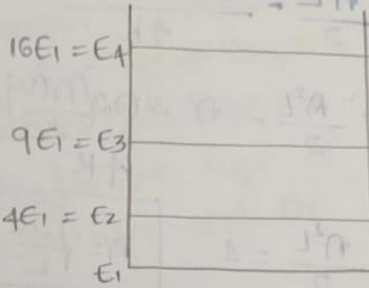 16E₁ = E₄
9E₁ = E₃
4E₁ = E₂
E₁